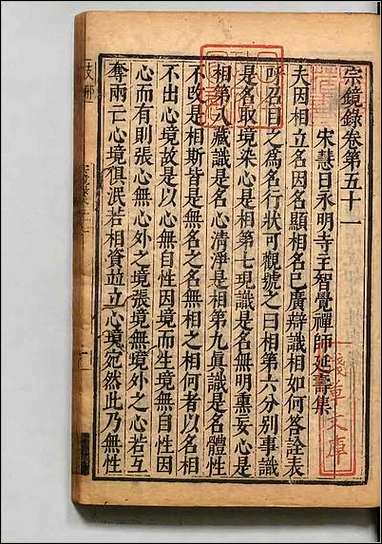 宗鏡錄卷第五十一
宋慧日永明寺主智覺禪師延壽集
夫因相立名因名顯相名已廣辯識相如何答詮表
呼召目之爲名行狀可觀號之曰相第六分別事識
是名取境染心是相第七現識是名無明熏妄心是
相第八藏識是名心清淨是相第九眞識是名體性
不改是相斯皆是無名之名無相之相何者以名相
不出心境故是以心無自性因境而生境無自性因
心而有則張心無心外之境張境無境外之心若互
奪兩亡心境俱泯若相資竝立心境宛然此乃無性